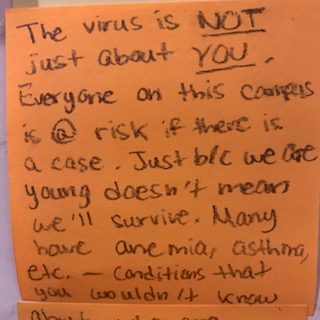 The virus is NOT
just about YOU.
Everyone on this campus
is @ risk if there is
a case. Just b/c we are
young doesn't mean
we'll survive. Many
have anemia, asthma,
etc. – Conditions that
you wouldn't know